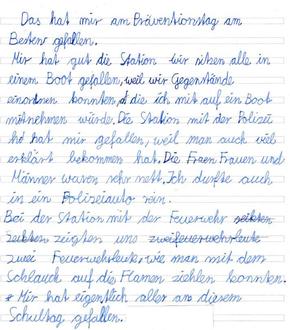 Das hat mir am Präventionstag am
Besten gefallen.
Mir hat gut die Station wir sitzen alle in
einem Boot gefallen, weil wir Gegenstände
einordnen konnten, die ich mit auf ein Boot
mitnehmen würde. Die Station mit der Polizei
hat mir gefallen, weil man auch viel
erklärt bekommen hat. Die Fraen Frauen und
Männer waren sehr nett. Ich durfte auch
in ein Polizeiauto rein.
Bei der Station mit der Feuerwehr
zeigten uns zweifeuerwehrleute
zwei Feuerwehrleute, wie man mit dem
Schlauch auf die Flamen ziehlen konnten.
* Mir hat eigentlich alles an diesem
Schultag gefallen.